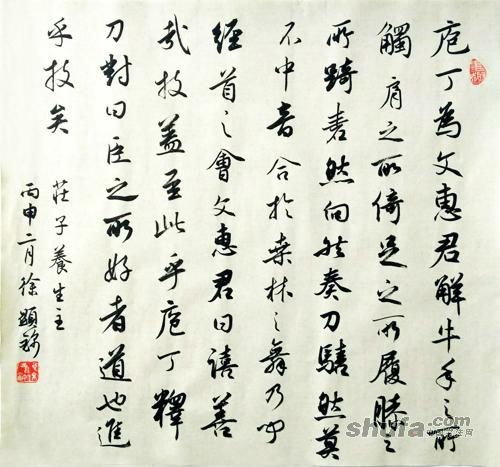 庖丁為文惠君解牛手之所
觸肩之所倚足之所履膝之
所踦砉然向然奏刀騞然莫
不中音合於桑林之舞乃中
經首之會文惠君曰譆善
哉技蓋至此乎庖丁釋
刀對曰臣之所好者道也進
乎技矣
莊子養生主
丙申二月徐
shufa.com